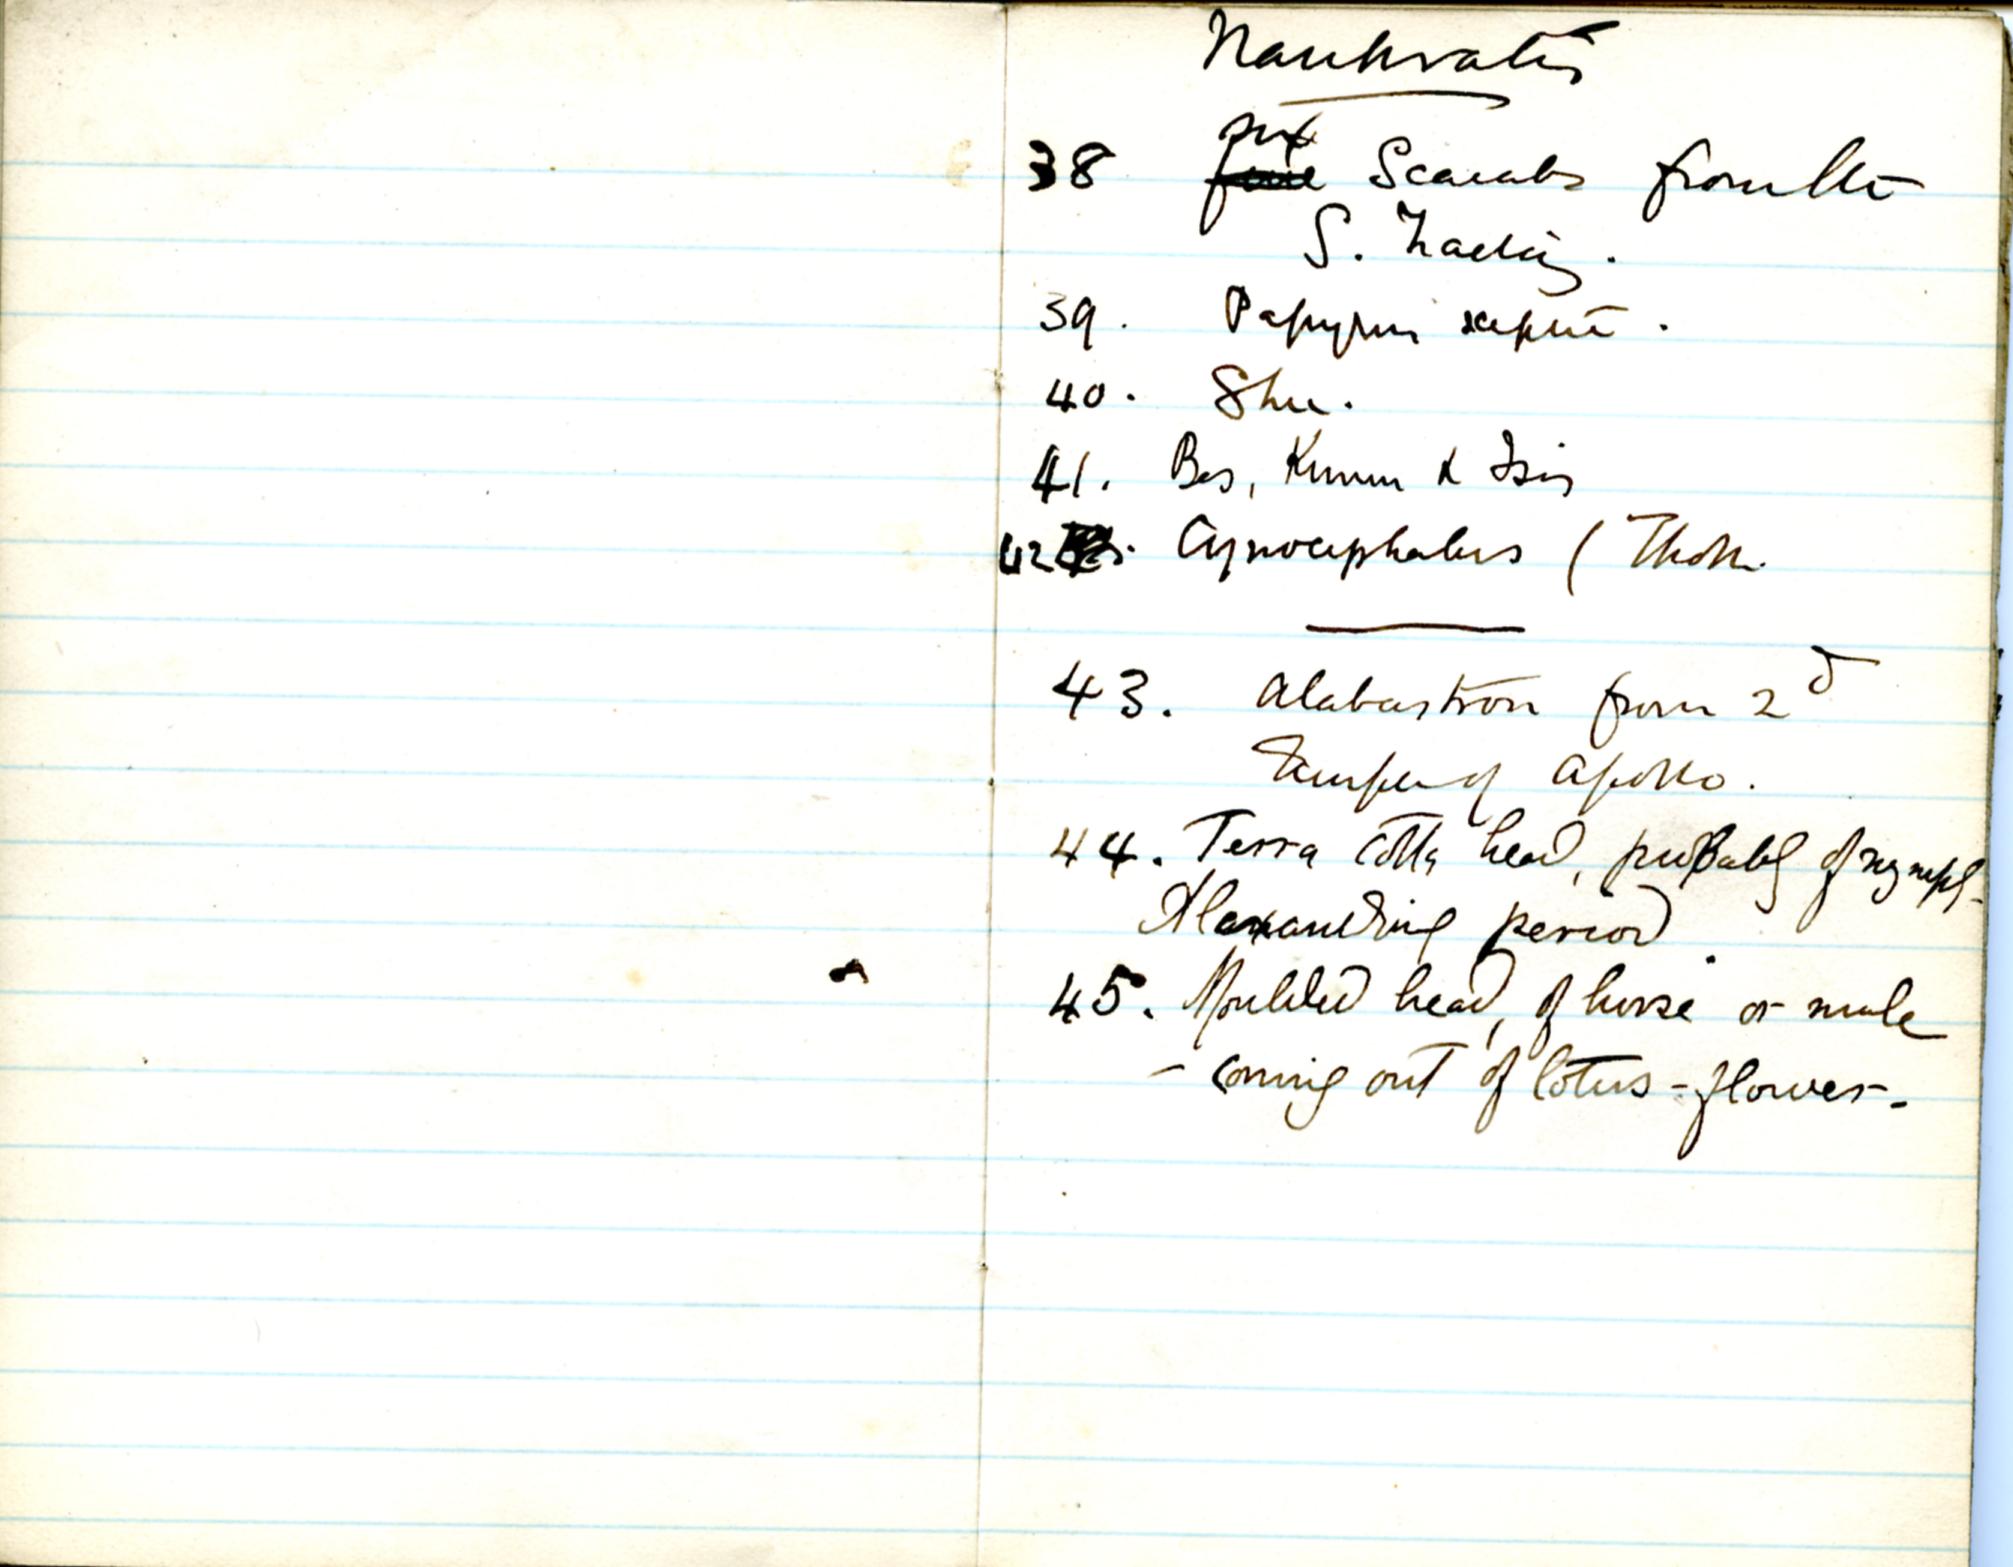 Naukratis
six
38 five Scarabs from the
S. Factory.
39. Papyrus sceptre.
40. Shu.
41. Bes, Knum & Isis
42 Cynocephalus (Thoth.
43. Alabastron from 2d
Temple of Apollo.
44. Terra cotta head, probably of nymph -
Alexandrine period.
45. Moulded head, of horse or mule
- coming out of lotus-flower -